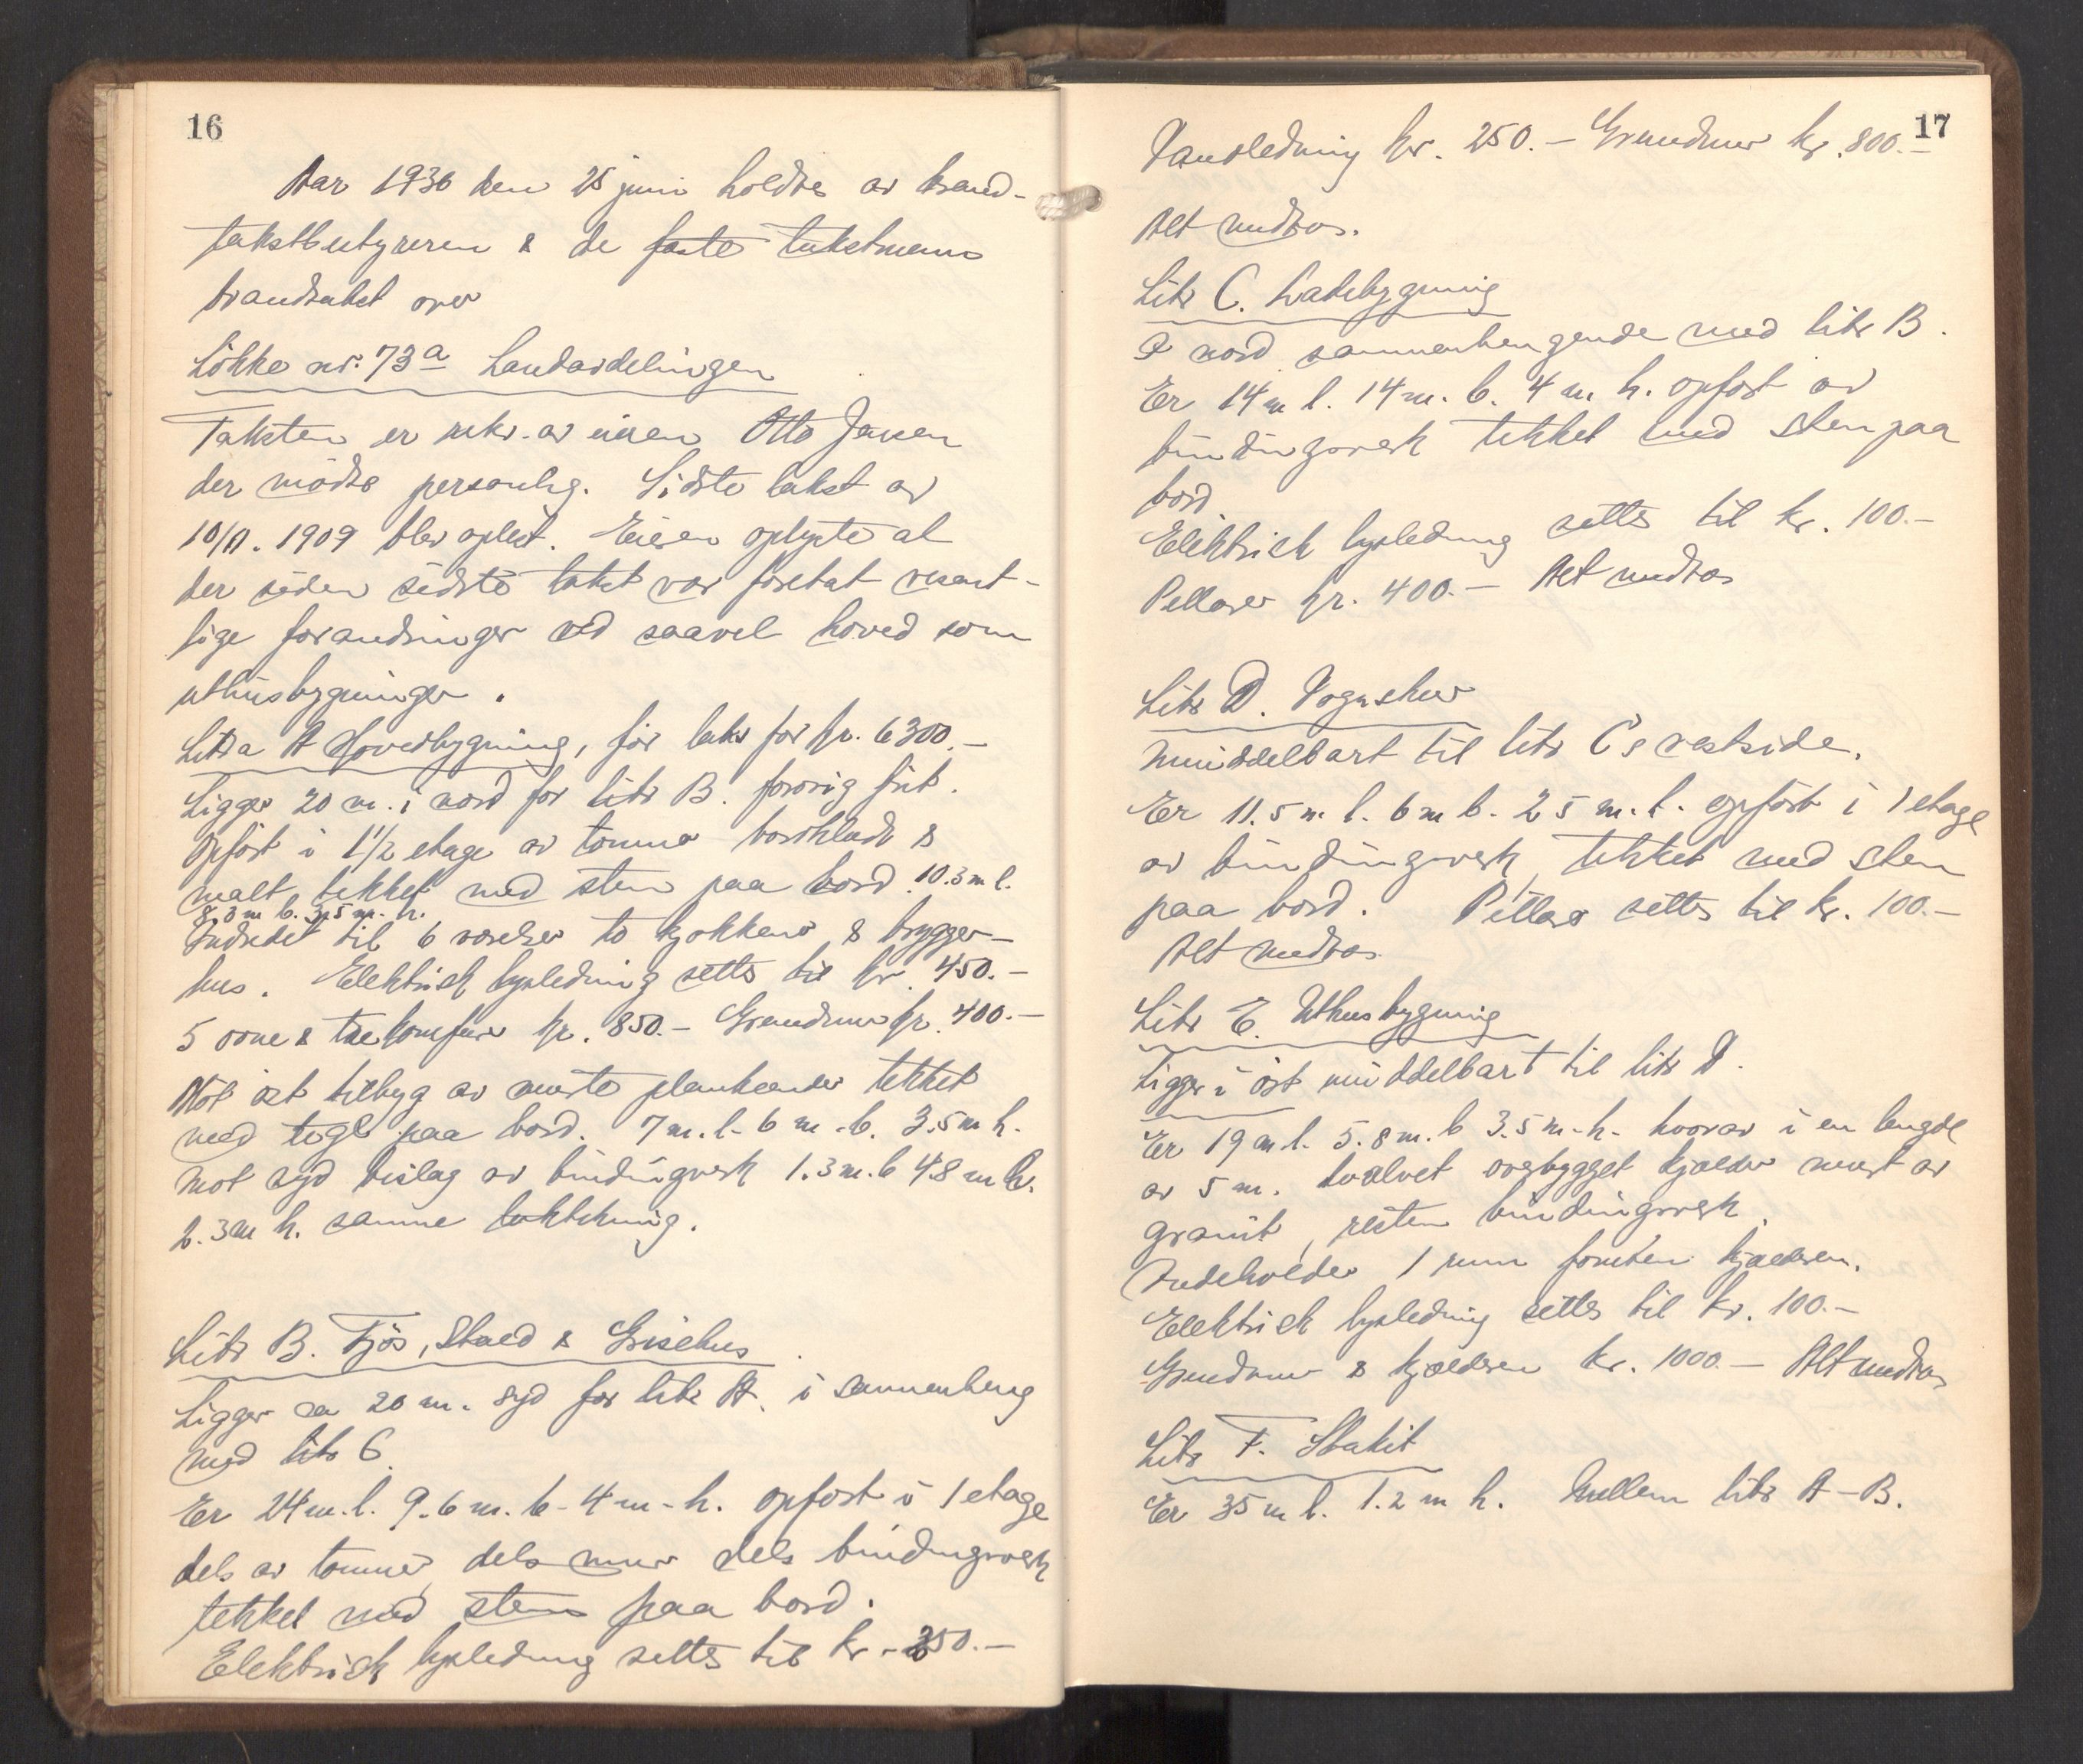 16
Aar 1936 den 25 juni holdtes av brand-
takstbestyreren & de faste takstmenn
brandtakst over
Løkke nr. 73a Landavdelingen
Taksten er rekv. av eieren Otto Jansen
der møtte personlig. Sidste takst av
10/11. 1909 blev oplest. Eieren oplyste at
der siden sidste takst var foretat vesent-
lige forandringer ved saavel hoved som
uthusbygninger.
Littra A Hovedbygning, før takst for kr. 6300.–
Ligger 20 m. i nord for litr B. forøvrig frit.
Opført i 1 1/2 etage av tømmer bordklædt &
malt, tekket med sten paa bord. 10.3 m l.
8.3 m b. 3.5 m. h.
Indredet til 6 værelser to kjøkkener & brygger-
hus. Elektrisk lysledning settes til kr. 450.–
5 ovne & tre komfurer kr. 850.– Grundmur kr. 400.–
Mot øst tilbyg av reiste plankeender tekket
med tegl paa bord. 7 m. l. 6 m. b. 3.5 m h.
Mot syd bislag av bindingverk 1.3 m. b 4.8 m l.
2.3 m h. samme taktekning.
Litr B. Fjøs, Stald & Grisehus
Ligger ca 20 m. syd for litr A. i sammenheng
med litr C.
Er 24 m. l. 9.6 m. b. 4 m. h. opført i 1 etage
dels av tømmer, dels mur dels bindingsverk
tekket med sten paa bord.
Elektrisk lysledning settes til kr. 350.–
17
Vandledning kr. 250.– Grundmur kr. 800.–
Alt medtas.
Litr C. Ladebygning
I nord sammenhengende med litr B.
Er 14 m l. 14 m. b. 4 m h. opført av
bindingsverk tekket med sten paa
bord
Elektrisk lysledning settes til kr. 100.–
Pillarer kr. 400.– Alt medtas
Litr D. Vognskur
umiddelbart til litr C's vestside.
Er 11.5 m. l. 6 m b. 2 5 m. h. opført i 1 etage
av bindingsverk, tekket med sten
paa bord. Pillarer settes til kr. 100.–
Alt medtas.
Litr E. Uthusbygning
Ligger i øst umiddelbart til litr D.
Er 19 m l. 5.8 m. b 3.5 m. h. hvorav i en lengde
av 5 m. hvælvet overbygget kjælder murt av
granit, resten bindingsverk.
Indeholder 1 rum foruten kjælderen.
Elektrisk lysledning settes til kr. 100.–
Grundmur & kjælderen kr. 1000.– Alt medtas
Litr F. Stakit
Er 35 m l. 1.2 m h. Mellem litr A–B.